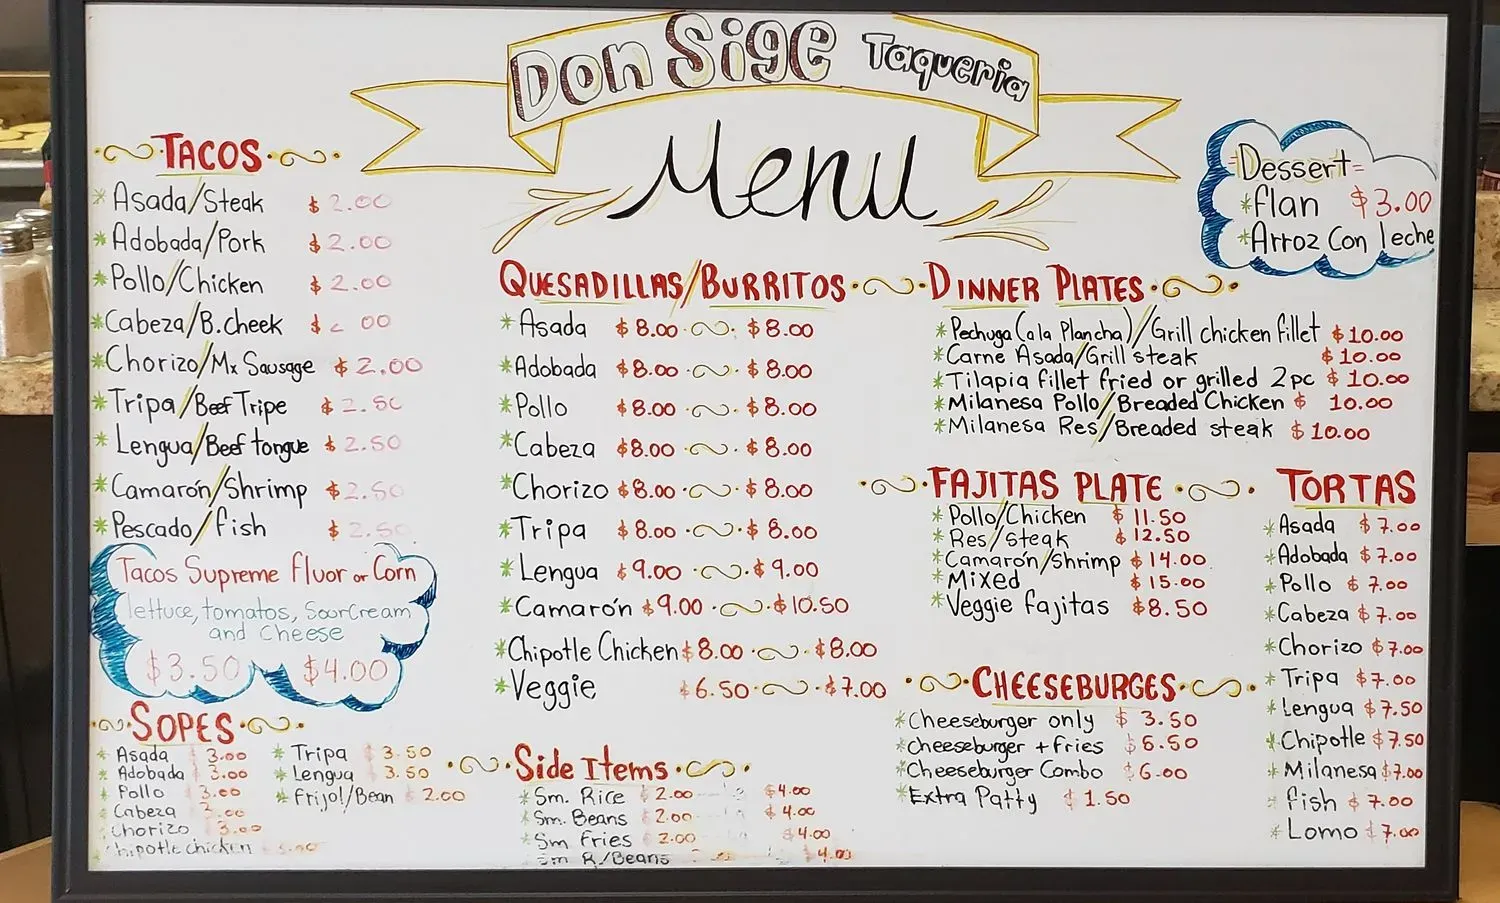 Don Sige Taqueria
Menu
TACOS
*Asada/Steak $2.00
*Adobada/Pork $2.00
*Pollo/Chicken $2.00
*Cabeza/B.cheek $2 00
*Chorizo/Mx Sausage $2.00
*Tripa/Beef Tripe $2.50
*Lengua/Beef tongue $2.50
*Camarón/Shrimp $2.50
*Pescado/fish $2.50
Tacos Supreme Fluor or Corn
lettuce, tomatos, SourCream
and Cheese
$3.50 $4.00
SOPES
*Asada $3.00
*Adobada $3.00
*Pollo $3.00
*Cabeza 3.00
*Chorizo 3.00
*Chipotle chicken
*Tripa $3.50
*Lengua $3.50
*Frijol/Bean $2.00
QUESADILLAS/BURRITOS
*Asada $8.00 $8.00
*Adobada $8.00 $8.00
*Pollo $8.00 $8.00
*Cabeza $8.00 $8.00
*Chorizo $8.00 $8.00
*Tripa $8.00 $8.00
*Lengua $9.00 $9.00
*Camarón $9.00 $10.50
*Chipotle Chicken $8.00 $8.00
*Veggie $6.50 $7.00
Side Items
*Sm. Rice $2.00 $4.00
*Sm. Beans $2.00 $4.00
*Sm Fries $2.00 $4.00
Sm R/Beans $4.00
Dessert
*flan $3.00
*Arroz Con leche
DINNER PLATES
*Pechuga (a la Plancha)/Grill chicken fillet $10.00
*Carne Asada/Grill steak $10.00
*Tilapia fillet fried or grilled 2pc $10.00
*Milanesa Pollo/Breaded Chicken $10.00
*Milanesa Res/Breaded steak $10.00
FAJITAS PLATE
*Pollo/Chicken $11.50
*Res/steak $12.50
*Camarón/Shrimp $14.00
*Mixed $15.00
*Veggie fajitas $8.50
CHEESEBURGES
*Cheeseburger only $3.50
*cheeseburger + fries $5.50
*Cheeseburger Combo $6.00
*Extra Patty $1.50
TORTAS
*Asada $7.00
*Adobada $7.00
*Pollo $7.00
*Cabeza $7.00
*Chorizo $7.00
*Tripa $7.00
*Lengua $7.50
*Chipotle $7.50
*Milanesa $7.00
*fish $7.00
*Lomo $7.00